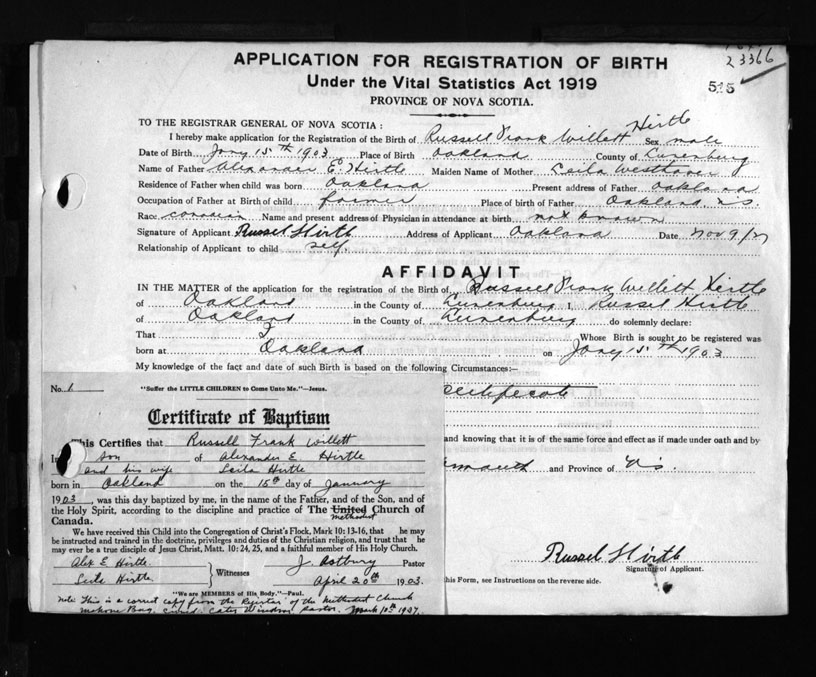 23366
515
APPLICATION FOR REGISTRATION OF BIRTH
Under the Vital Statistics Act 1919
PROVINCE OF NOVA SCOTIA.
TO THE REGISTRAR GENERAL OF NOVA SCOTIA :
I hereby make application for the Registration of the Birth of Russell Frank Willett Hirtle Sex male
Date of Birth Jany 15th 1903 Place of Birth Oakland County of Lunenburg
Name of Father Alexander E. Hirtle Maiden Name of Mother Leila Westhaver
Residence of Father when child was born Oakland Present address of Father Oakland
Occupation of Father at Birth of child farmer Place of birth of Father Oakland N.S.
Race Canadian Name and present address of Physician in attendance at birth not known
Signature of Applicant Russel Hirtle Address of Applicant Oakland Date Nov 9/
Relationship of Applicant to child self
AFFIDAVIT
IN THE MATTER of the application for the registration of the Birth of Russell Frank Willett Hirtle
of Oakland in the County of Lunenburg I, Russel Hirtle
of Oakland in the County of Lunenburg do solemnly declare:
That I Whose Birth is sought to be registered was
born at Oakland on Jany 15th 1903
My knowledge of the fact and date of such Birth is based on the following Circumstances:—
and knowing that it is of the same force and effect as if made under oath and by
and Province of N.S.
Russel Hirtle
Signature of Applicant.
this Form, see Instructions on the reverse side.
No. 1 "Suffer the LITTLE CHILDREN to Come Unto Me."—Jesus.
Certificate of Baptism
This Certifies that Russell Frank Willett
son of Alexander E. Hirtle
and his wife Leila Hirtle
born in Oakland on the 15th day of January
1903, was this day baptized by me, in the name of the Father, and of the Son, and of
the Holy Spirit, according to the discipline and practice of The United Methodist Church of
Canada.
We have received this Child into the Congregation of Christ's Flock, Mark 10: 13-16, that he may
be instructed and trained in the doctrine, privileges and duties of the Christian religion, and trust that he
may ever be a true disciple of Jesus Christ, Matt. 10: 24, 25, and a faithful member of His Holy Church.
Alex E Hirtle Witnesses J. Astbury Pastor
Leila Hirtle April 20th 1903.
"We are MEMBERS of His Body."—Paul.
Note This is a correct copy from the Register of the Methodist Church
Mahone Bay. Pastor. March 10th 1927.